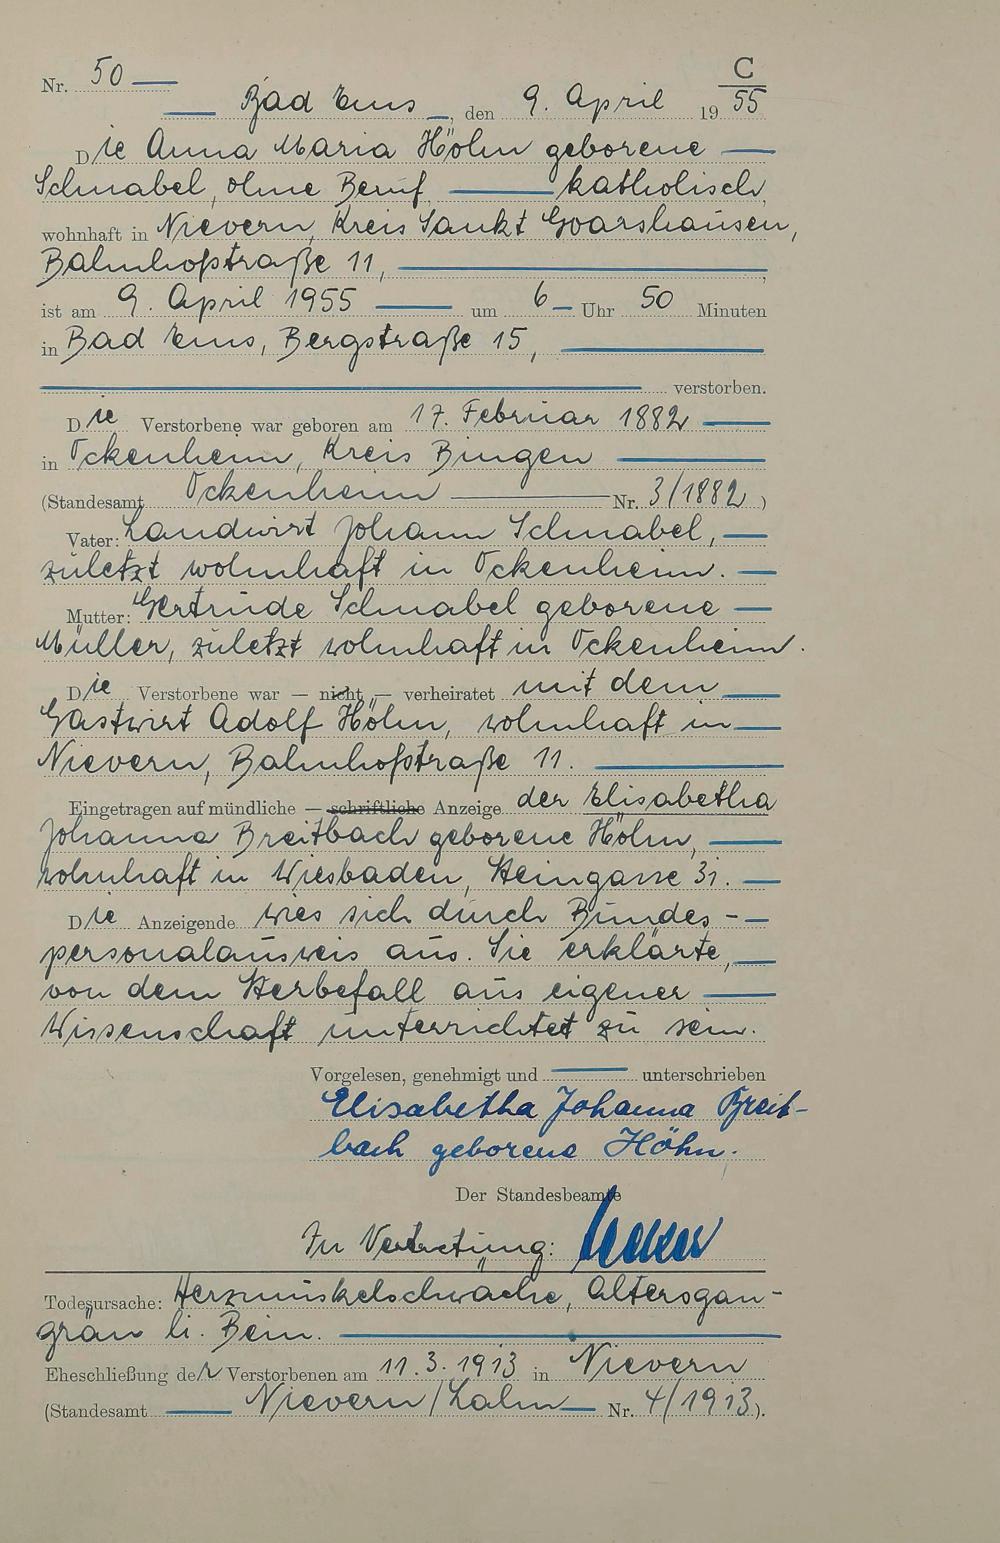 C
Nr. 50
Bad Ems, den 9. April 19 55
Die Anna Maria Höhn geborene
Schnabel, ohne Beruf katholisch,
wohnhaft in Nievern, Kreis Sankt Goarshausen,
Bahnhofstraße 11,
ist am 9. April 1955 um 6 Uhr 50 Minuten
in Bad Ems, Bergstraße 15,
verstorben.
Die Verstorbene war geboren am 17. Februar 1882
in Ockenheim, Kreis Bingen
(Standesamt Ockenheim Nr. 3/1882)
Vater: Landwirt Johann Schnabel,
zuletzt wohnhaft in Ockenheim.
Mutter: Gertrude Schnabel geborene
Müller, zuletzt wohnhaft in Ockenheim.
Die Verstorbene war — nicht — verheiratet mit dem
Gastwirt Adolf Höhn, wohnhaft in
Nievern, Bahnhofstraße 11.
Eingetragen auf mündliche — schriftliche Anzeige der Elisabetha
Johanna Breitbach geborene Höhn,
wohnhaft in Wiesbaden, Steingasse 31.
Die Anzeigende wies sich durch Bundes-
personalausweis aus. Sie erklärte,
von dem Sterbefall aus eigener
Wissenschaft unterrichtet zu sein.
Vorgelesen, genehmigt und unterschrieben
Elisabetha Johanna Breit-
bach geborene Höhn.
Der Standesbeamte
In Vertretung:
Todesursache: Herzmuskelschwäche, Altersgan-
grän li. Bein.
Eheschließung der Verstorbenen am 11.3.1913 in Nievern
(Standesamt Nievern/Lahn Nr. 4/1913).